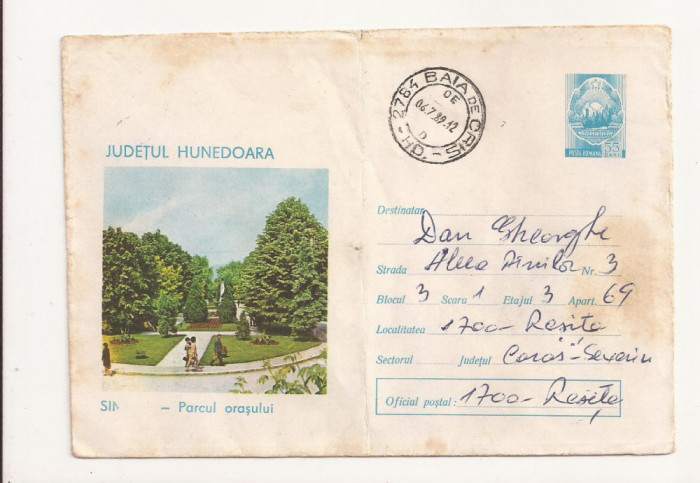 JUDEȚUL HUNEDOARA
SIM – Parcul orașului
2784 BAIA DE CRIS
OE
06.7.89.12
D
- HD. -
POSTA ROMANA 55
Destinatar Dan Gheorghe
Strada Aleea Nr. 3
Blocul 3 Scara 1 Etajul 3 Apart. 69
Localitatea 1700 - Resita
Sectorul Județul Caraș-Severin
Oficiul poștal: 1700 - Resița